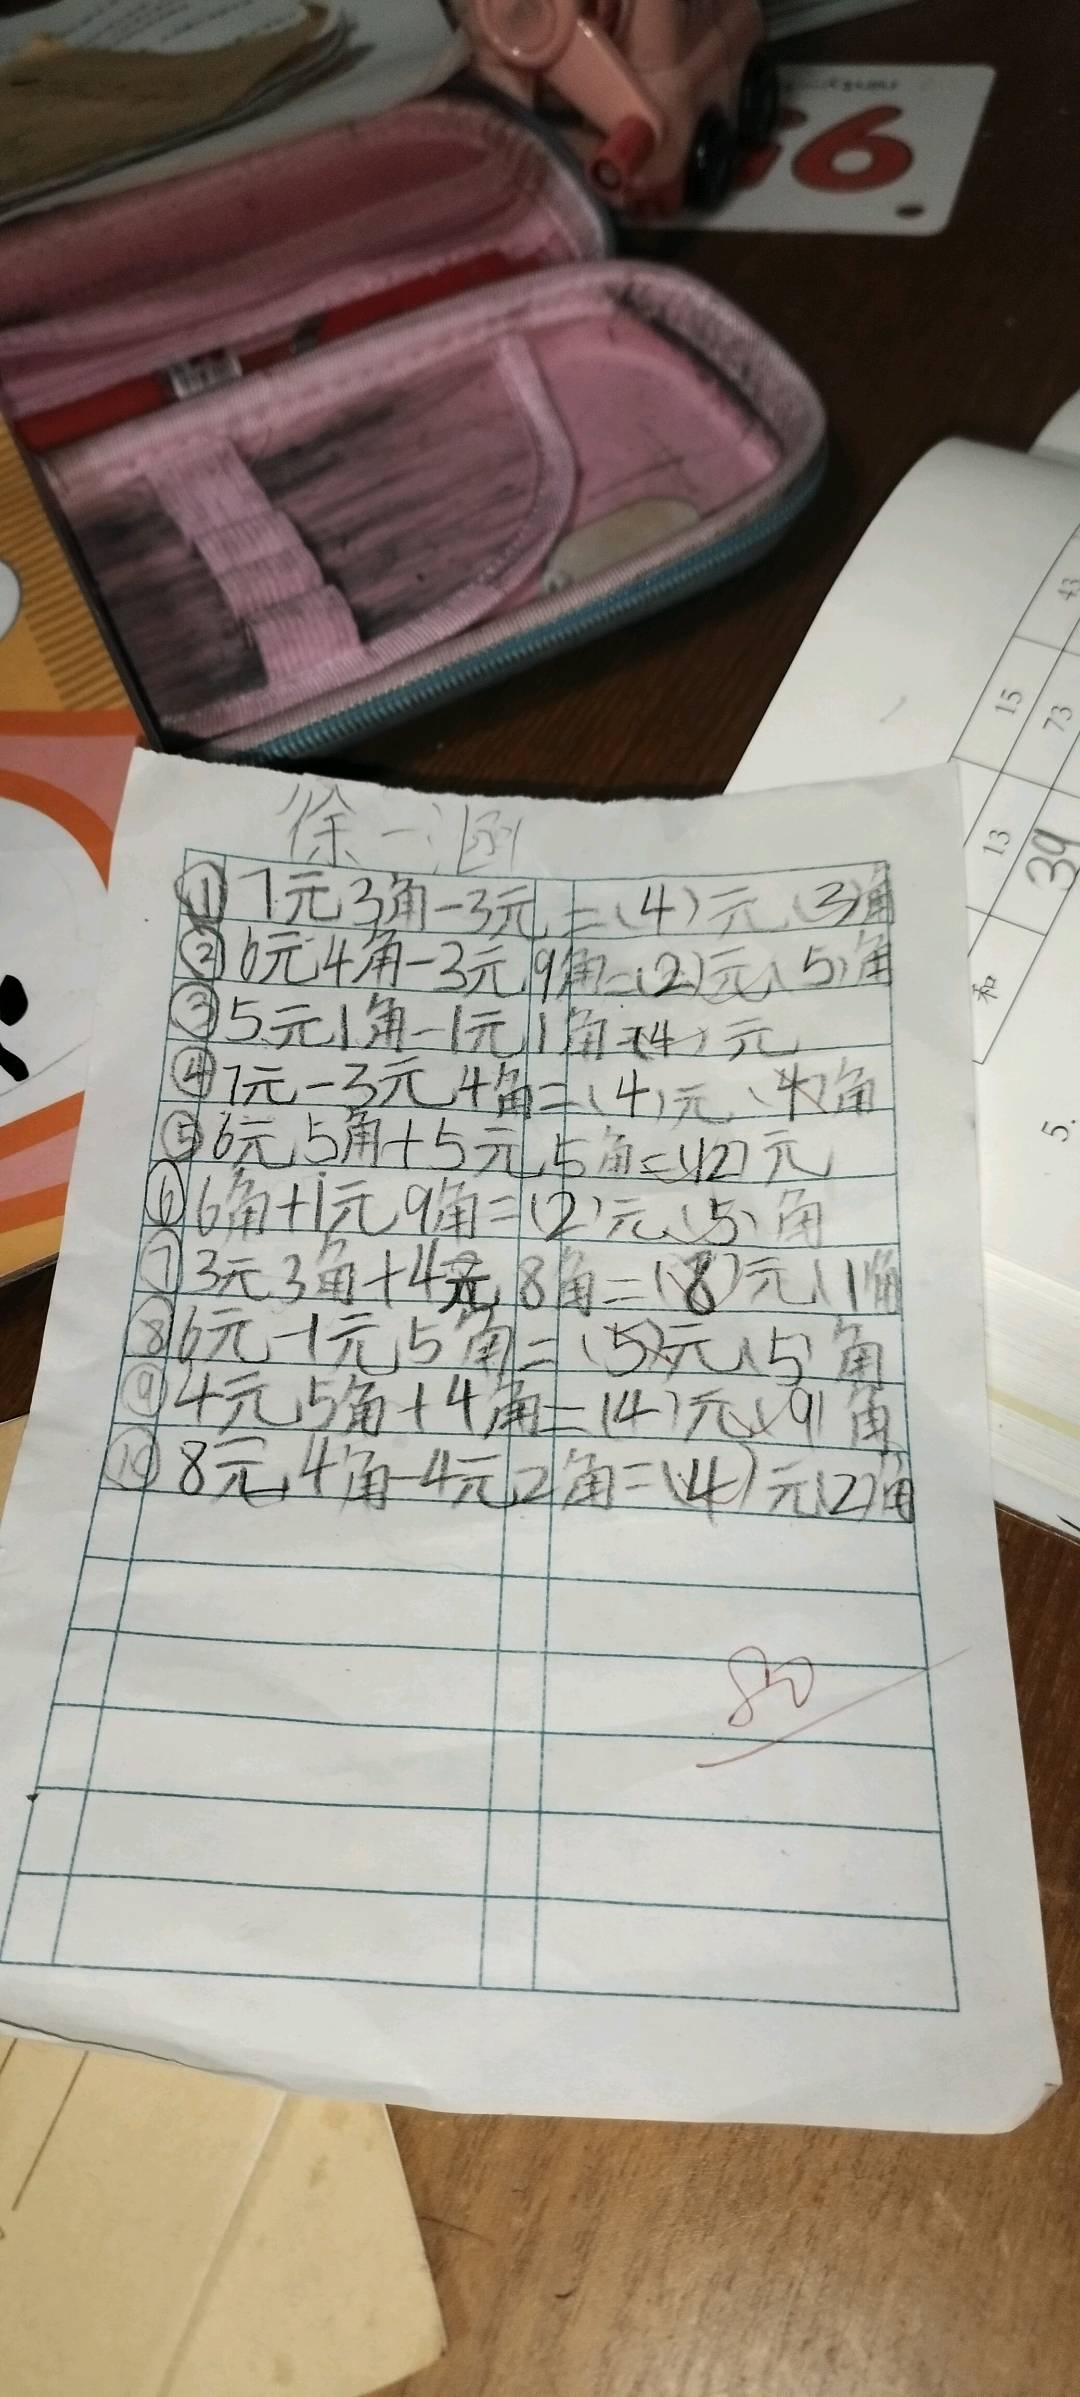 96
43
15
73
13
39
和
5.
徐一涵
①7元3角-3元=(4)元(3)角
②6元4角-3元9角=(2)元(5)角
③5元1角-1元1角=(4)元
④7元-3元4角=(4)元(4)角
⑤6元5角+5元5角=(12)元
⑥6角+1元9角=(2)元(5)角
⑦3元3角+4元8角=(8)元(1)角
⑧6元-1元5角=(5)元(5)角
⑨4元5角+4角=(4)元(9)角
⑩8元4角-4元2角=(4)元(2)角
80